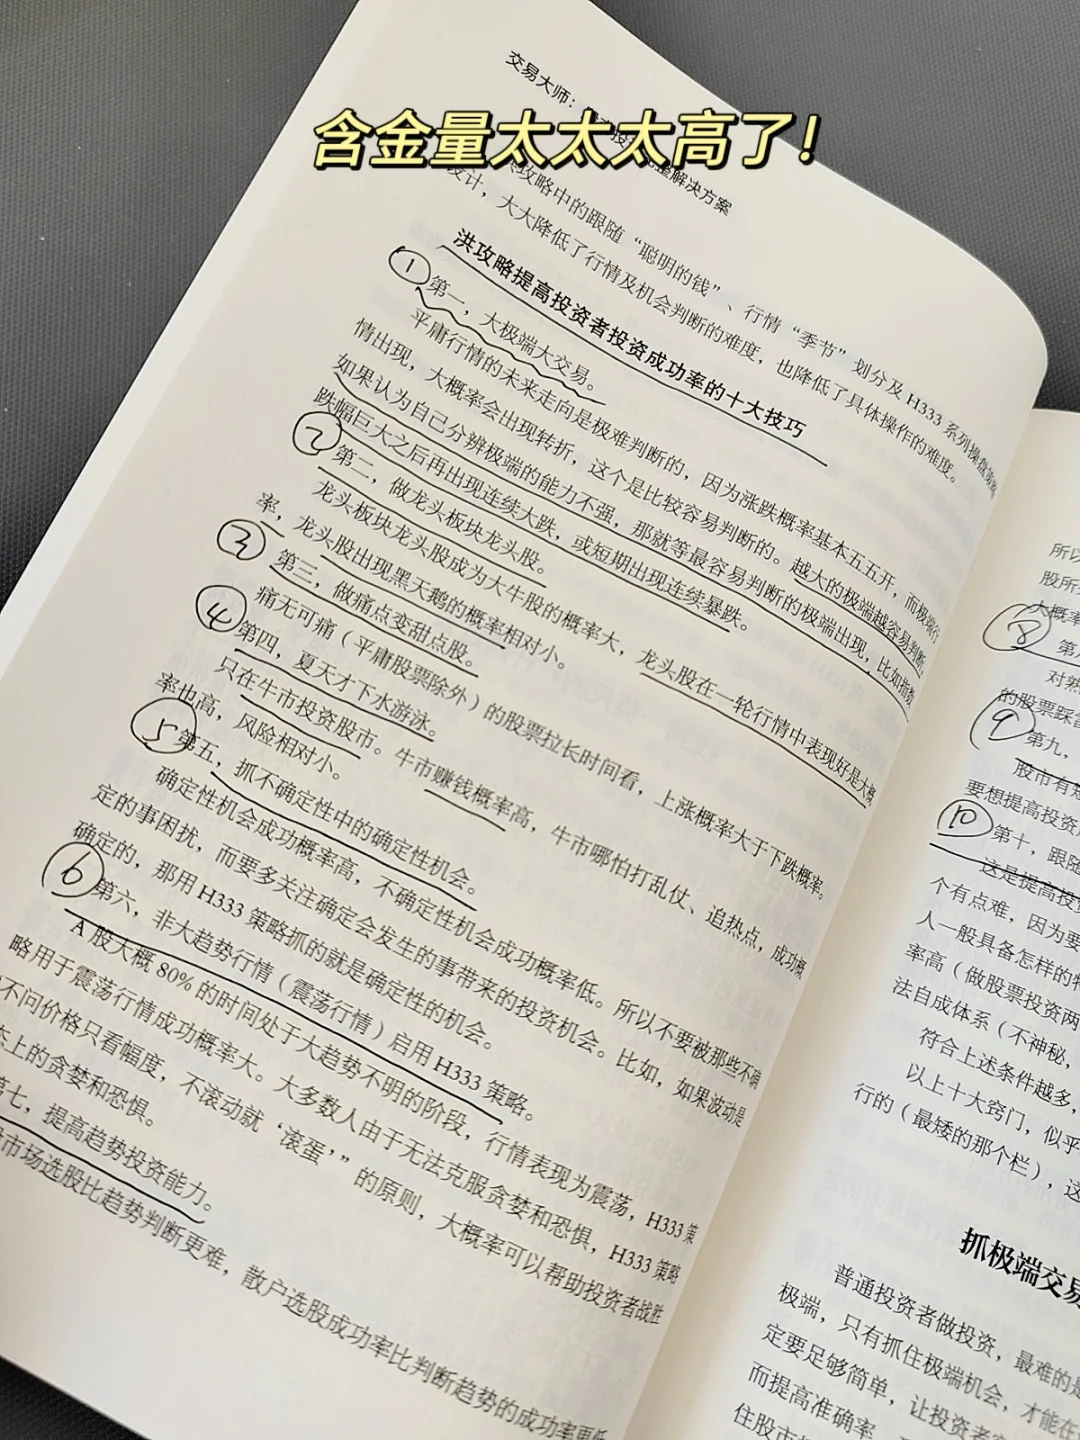 含金量太太太高了!
交易大师：
整解决方案
攻略中的跟随“聪明的钱”、行情“季节”划分及H333系列操盘策略
设计，大大降低了行情及机会判断的难度，也降低了具体操作的难度。
洪攻略提高投资者投资成功率的十大技巧
① 第一，大极端大交易。
平庸行情的未来走向是极难判断的，因为涨跌概率基本五五开，而极端行
情出现，大概率会出现转折，这个是比较容易判断的。越大的极端越容易判断，
如果认为自己分辨极端的能力不强，那就等最容易判断的极端出现，比如指数
跌幅巨大之后再出现连续大跌，或短期出现连续暴跌。
② 第二，做龙头板块龙头股。
龙头板块龙头股成为大牛股的概率大，龙头股在一轮行情中表现好是大概
率，龙头股出现黑天鹅的概率相对小。
③ 第三，做痛点变甜点股。
痛无可痛（平庸股票除外）的股票拉长时间看，上涨概率大于下跌概率。
④ 第四，夏天才下水游泳。
只在牛市投资股市。牛市赚钱概率高，牛市哪怕打乱仗、追热点，成功概
率也高，风险相对小。
⑤ 第五，抓不确定性中的确定性机会。
确定性机会成功概率高，不确定性机会成功概率低。所以不要被那些不确
定的事困扰，而要多关注确定会发生的事带来的投资机会。比如，如果波动是
确定的，那用H333策略抓的就是确定性的机会。
⑥ 第六，非大趋势行情（震荡行情）启用H333策略。
A股大概80%的时间处于大趋势不明的阶段，行情表现为震荡，H333策
略用于震荡行情成功概率大。大多数人由于无法克服贪婪和恐惧，H333策略
不问价格只看幅度，不滚动就‘滚蛋’”的原则，大概率可以帮助投资者战胜
态上的贪婪和恐惧。
第七，提高趋势投资能力。
市场选股比趋势判断更难，散户选股成功率比判断趋势的成功率更低
所以
股所
大概率
⑧ 第八
对熟
的股票踩
⑨ 第九，
股市有
要想提高投资
⑩ 第十，跟随
这是提高投
个有点难，因为要
人一般具备怎样的特
率高（做股票投资两
法自成体系（不神秘，
符合上述条件越多，
以上十大窍门，似乎
行的（最矮的那个栏），这
抓极端交易
普通投资者做投资，最难的是
极端，只有抓住极端机会，才能在
定要足够简单，让投资者
而提高准确率，
住股市